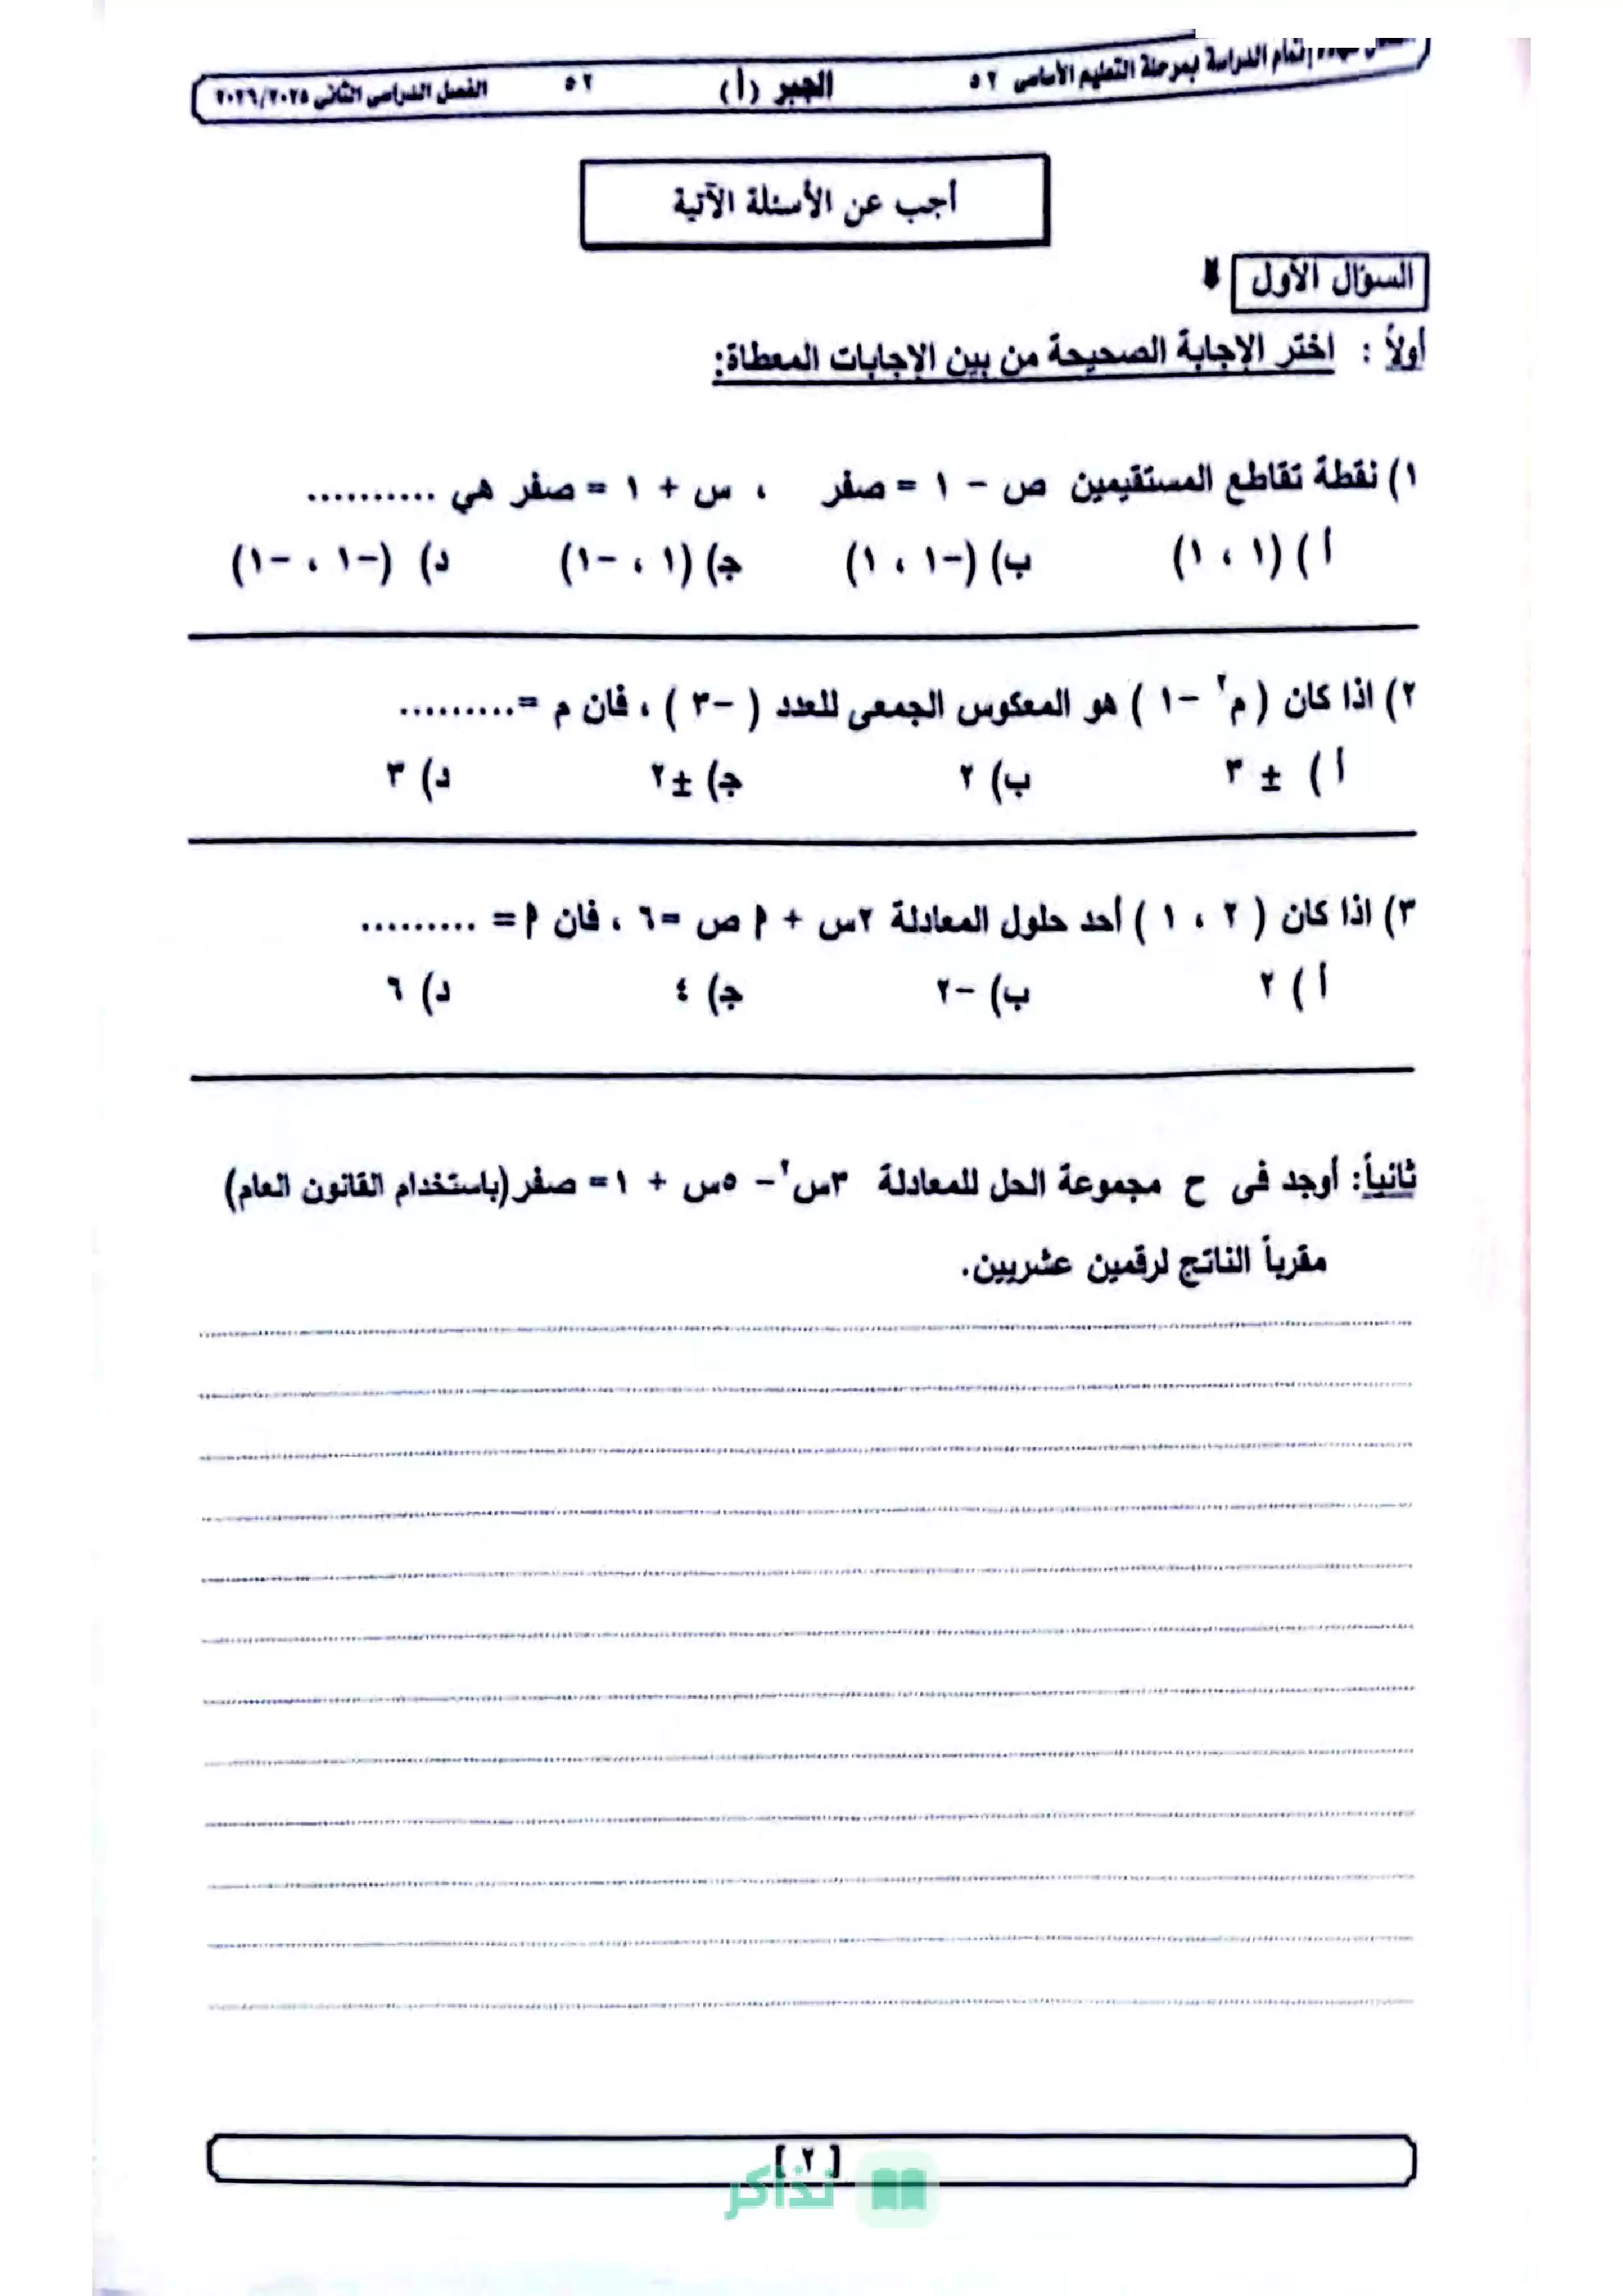 إتمام الدراسة بمرحلة التعليم الأساسى ٥٢ الجبر (أ) ٥٢ الفصل الدراسى الثانى ٢٠٢٦/٢٠٢٥
أجب عن الأسئلة الآتية
السؤال الأول
أولاً : اختر الإجابة الصحيحة من بين الإجابات المعطاة:
١) نقطة تقاطع المستقيمين ص - ١ = صفر ، س + ١ = صفر هي ..........
أ ) (١ ، ١) ب) (-١ ، ١) ج) (١ ، -١) د) (-١ ، -١)
٢) اذا كان ( م٢ -١ ) هو المعكوس الجمعى للعدد ( -٣ ) ، فان م =.........
أ ) ± ٣ ب) ٢ ج) ±٢ د) ٣
٣) اذا كان ( ٢ ، ١ ) أحد حلول المعادلة ٢س + م ص =٦ ، فان م = .........
أ ) ٢ ب) -٢ ج) ٤ د) ٦
ثانياً: أوجد فى ح مجموعة الحل للمعادلة ٣س٢- ٥س + ١= صفر (باستخدام القانون العام)
مقرباً الناتج لرقمين عشريين.
[ ٢ ]
نذاكر